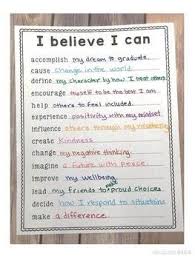 I believe I can
accomplish my dream to graduate.
cause change in the world.
define my character by how I treat others.
encourage myself to be the best I am
help others to feel included.
experience positivity with my mindset
influence others through my
create Kindness
change my negative thinking.
imagine a future with peace
improve my wellbeing
lead my friends to make proud choices
decide how I respond to situations
make a difference.